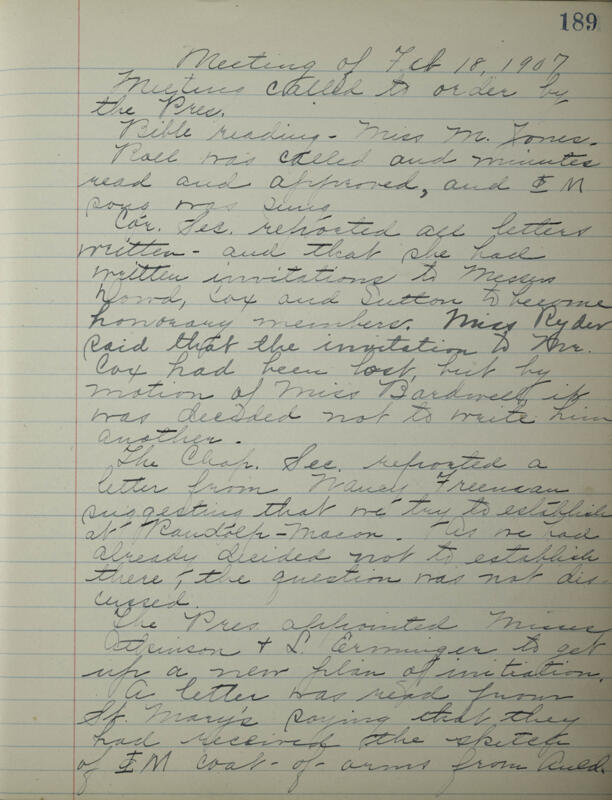 189
Meeting of Feb 18, 1907
Meeting called to order by
the Pres.
Bible reading - Miss M. Jones.
Roll was called and minutes
read and approved, and Φ M
song was sung
Cor. Sec. reported all letters
written - and that she had
written invitations to Messrs
Dowd, Cox and Sutton to become
honorary members. Miss Ryder
said that the invitation to Mr.
Cox had been lost, but by
motion of Miss Bardwell, it
was decided not to write him
another.
The Chap. Sec. reported a
letter from Freeman
suggesting that we try to establish
at Randolp-Macon. As we had
already decided not to establish
there, the question was not dis
cussed.
The Pres. appointed Misses
Atkinson & L. Erminger to get
up a new plan of initiation.
A letter was read from
St. Mary's saying that they
had received the sketch
of Φ M coat-of-arms from Auld.